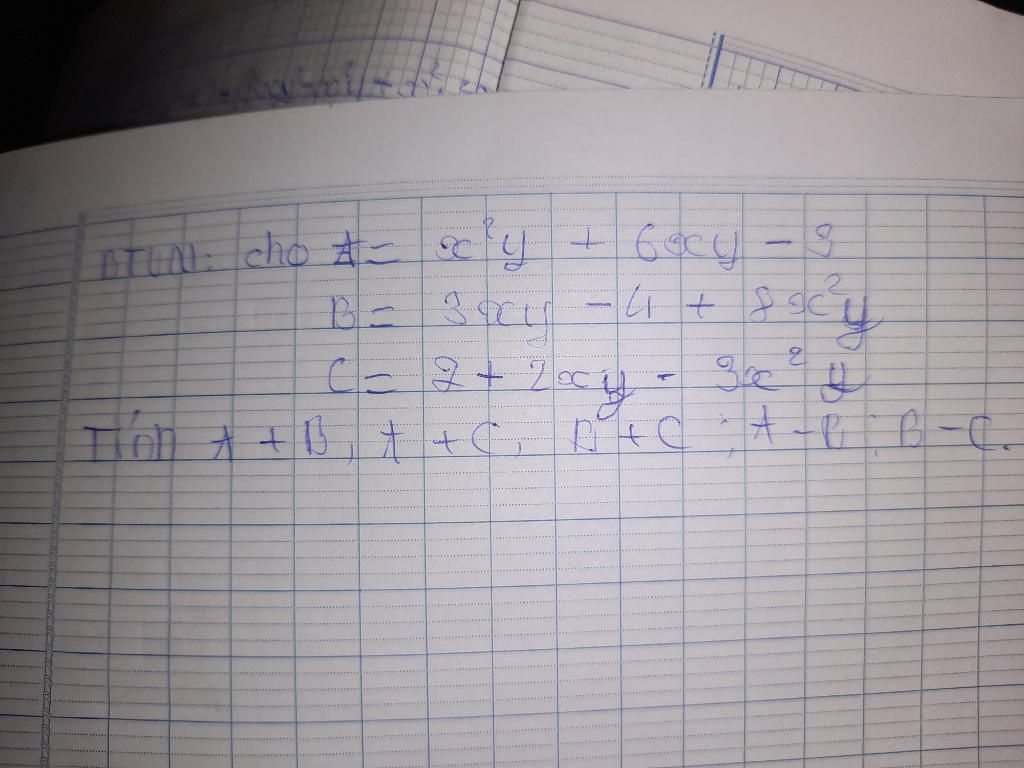 BTVN: cho A = x²y + 6xy - 3
B = 3xy - 4 + 8x²y
C = 2 + 2xy - 3x²y
Tính A + B, A + C, B + C ; A - B ; B - C.